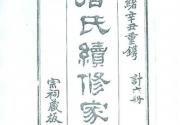 緒辛丑重鐫 計六冊
氏續修家
宗祠藏板